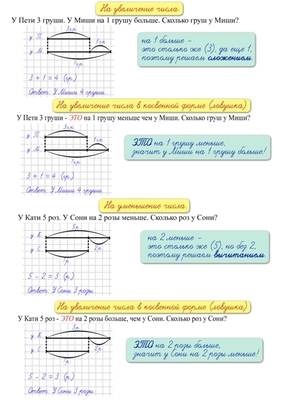 На увеличение числа
У Пети 3 груши. У Миши на 1 грушу больше. Сколько груш у Миши?
3г.
1г.
у П.
у М.
?г.
на 1 больше -
это столько же (3), да еще 1,
поэтому решаем сложением.
3 + 1 = 4 (г.)
Ответ: У Миши 4 груши.
На увеличение числа в косвенной форме (ловушка)
У Пети 3 груши - ЭТО на 1 грушу меньше чем у Миши. Сколько груш у Миши?
3г.
1г.
у П.
у М.
?г.
ЭТО на 1 грушу меньше,
значит у Миши на 1 грушу больше!
3 + 1 = 4 (г.)
Ответ: У Миши 4 груши.
На уменьшение числа
У Кати 5 роз. У Сони на 2 розы меньше. Сколько роз у Сони?
5р.
у К.
у С.
?р.
2р.
на 2 меньше -
это столько же (5), но без 2,
поэтому решаем вычитанием.
5 - 2 = 3 (р.)
Ответ: У Сони 3 розы.
На увеличение числа в косвенной форме (ловушка)
У Кати 5 роз - ЭТО на 2 розы больше, чем у Сони. Сколько роз у Сони?
5р.
у К.
у С.
?р.
2р.
ЭТО на 2 розы больше,
значит у Сони на 2 розы меньше!
5 - 2 = 3 (р.)
Ответ: У Сони 3 розы.